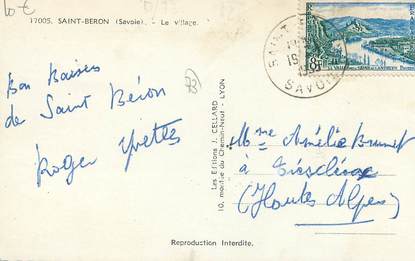 17005. SAINT-BERON (Savoie). - Le village.
Bon Baisers
de Saint Béron
Roger Yvette
73
Les Editions J. CELLARD
10, montée du Chemin-Neuf - LYON
SAINT
SAVOIE
8F
LA VALLÉE DE LA SEINE AUX ANDELYS
Mme Amélie Brunet
à
(Hautes Alpes)
Reproduction Interdite.